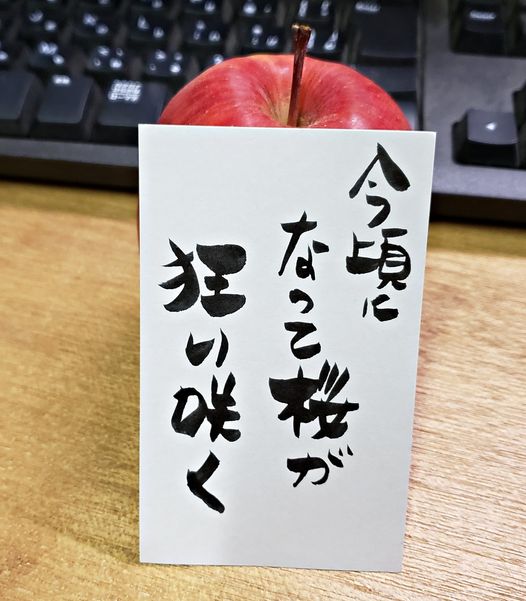 今頃に
なって桜が
狂い咲く